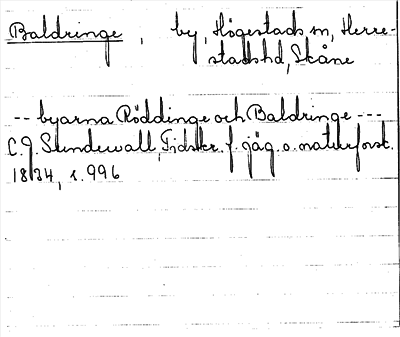 Baldringe, by, Högestads sn, Herre-
stadshd, Skåne
-- byarna Röddinge och Baldringe ---
C.J. Sundewall, Tidskr. f. jäg. o. naturforsk.
1834, s. 996